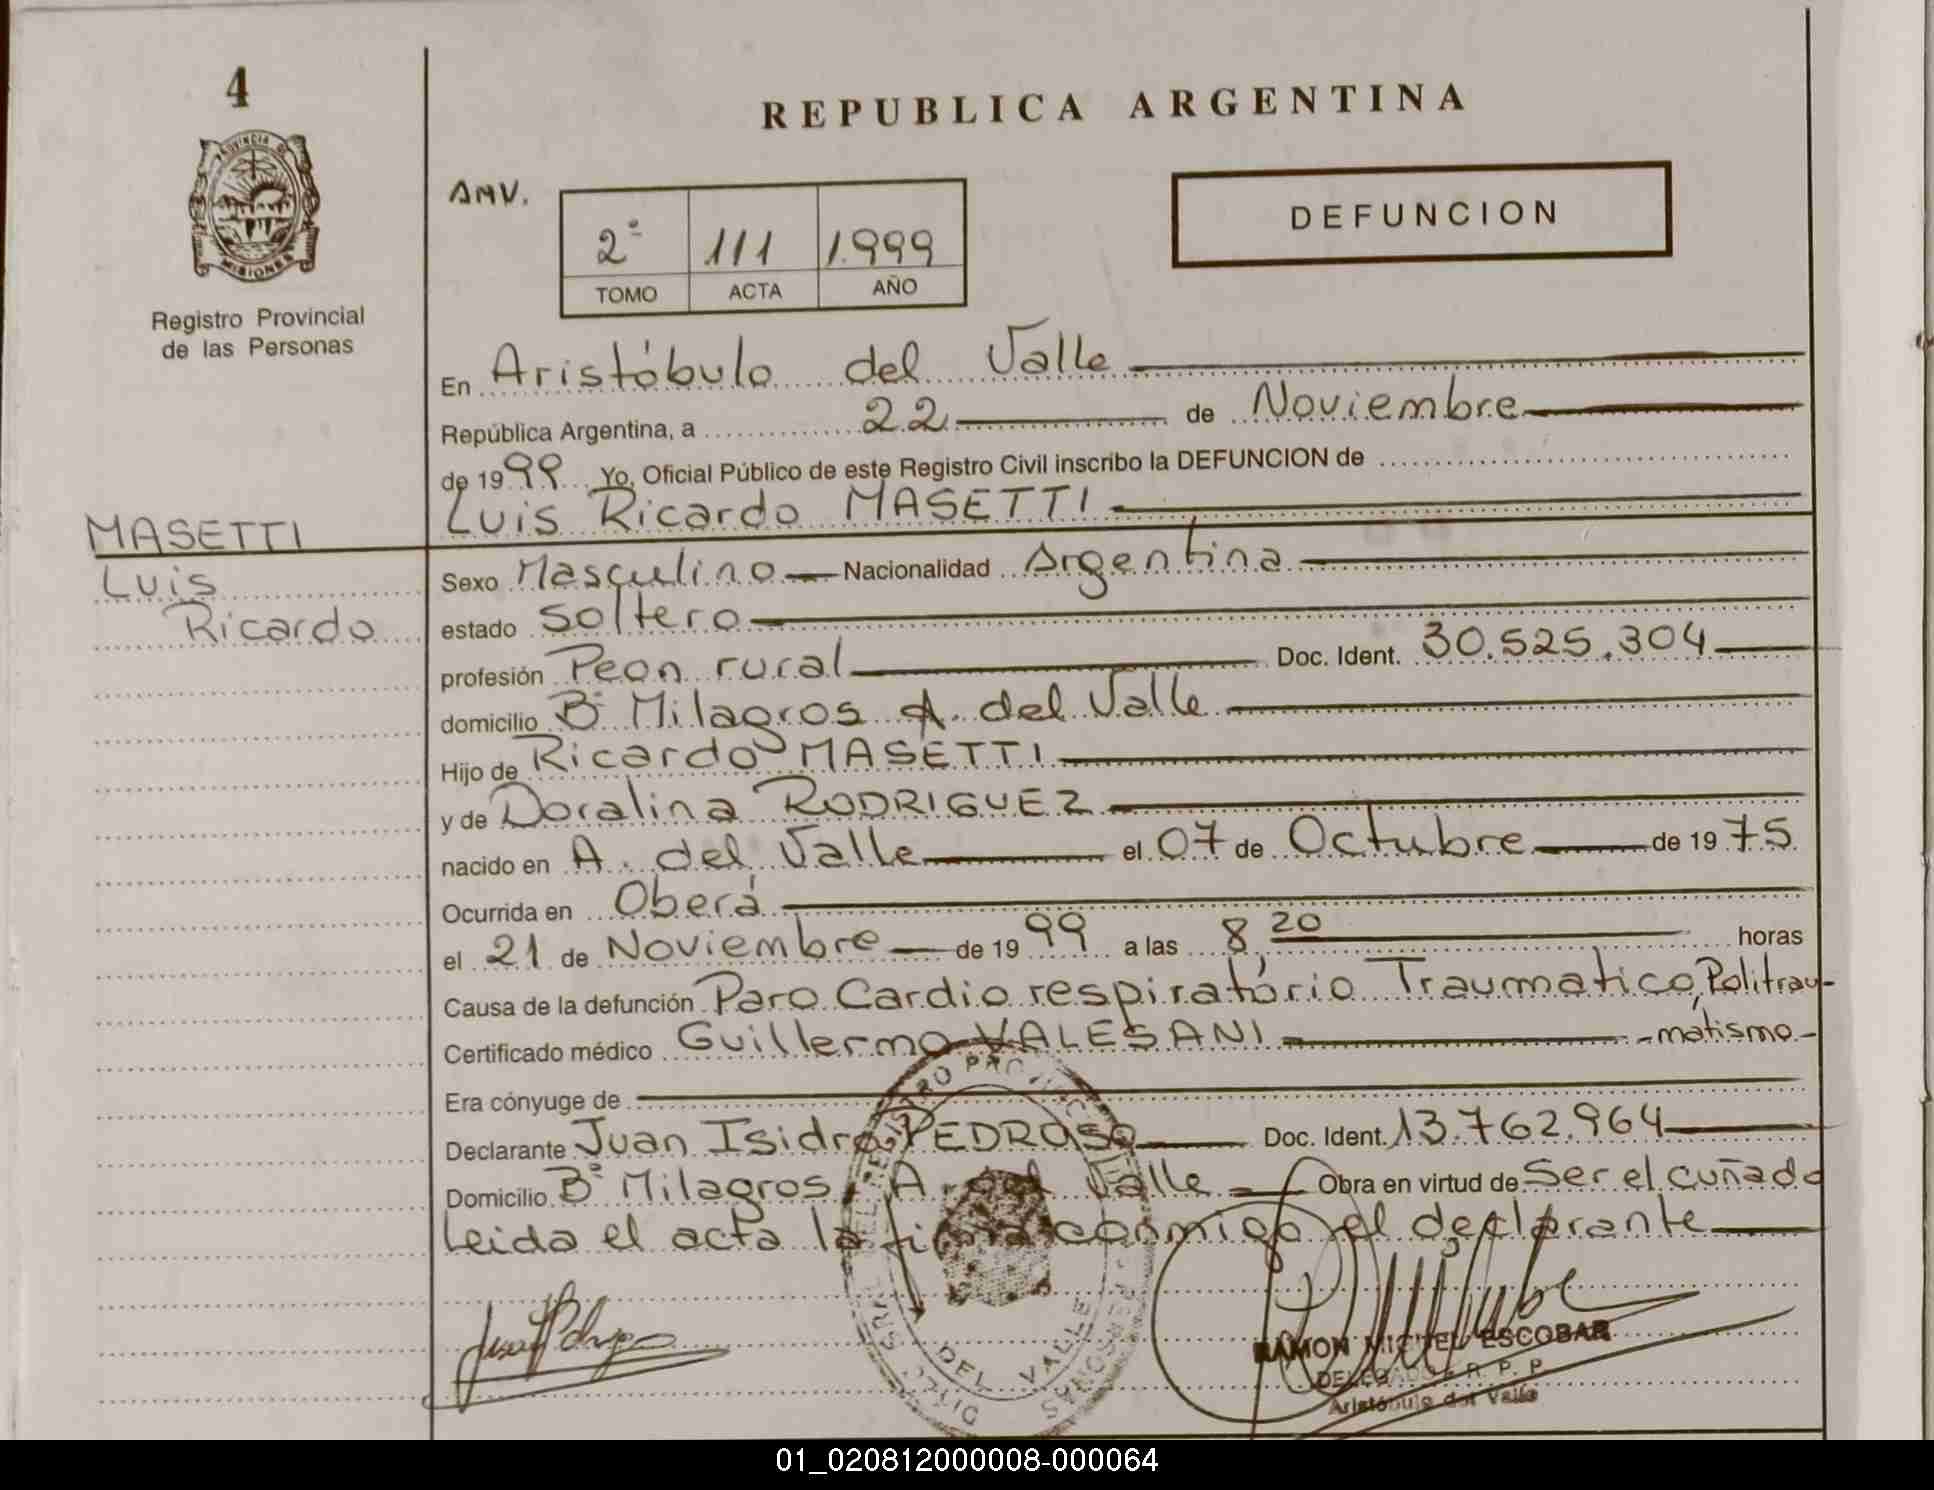 4
PROVINCIA DE
MISIONES
Registro Provincial
de las Personas
MASETTI
Luis
Ricardo
REPUBLICA ARGENTINA
AMV.
2º 111 1.999
TOMO ACTA AÑO
DEFUNCION
En Aristóbulo del Valle
República Argentina, a 22 de Noviembre
de 1999 Yo, Oficial Público de este Registro Civil inscribo la DEFUNCION de
Luis Ricardo MASETTI
Sexo Masculino Nacionalidad Argentina
estado Soltero
profesión Peon rural Doc. Ident. 30.525.304
domicilio Bº Milagros A. del Valle
Hijo de Ricardo MASETTI
y de Doralina RODRIGUEZ
nacido en A. del Valle el 07 de Octubre de 1975
Ocurrida en Oberá
el 21 de Noviembre de 1999 a las 8,20 horas
Causa de la defunción Paro Cardio respiratório Traumatico, Politrau-
Certificado médico Guillermo VALESANI -matismo-
Era cónyuge de
Declarante Juan Isidro PEDROSO Doc. Ident. 13.762.964
Domicilio Bº Milagros, A. del Valle Obra en virtud de Ser el cuñado
Leida el acta la firma conmigo el declarante
DEL VALLE
RAMON MIGUEL ESCOBAR
DELEGADO R. P. P.
Aristóbulo del Valle
01_020812000008-000064